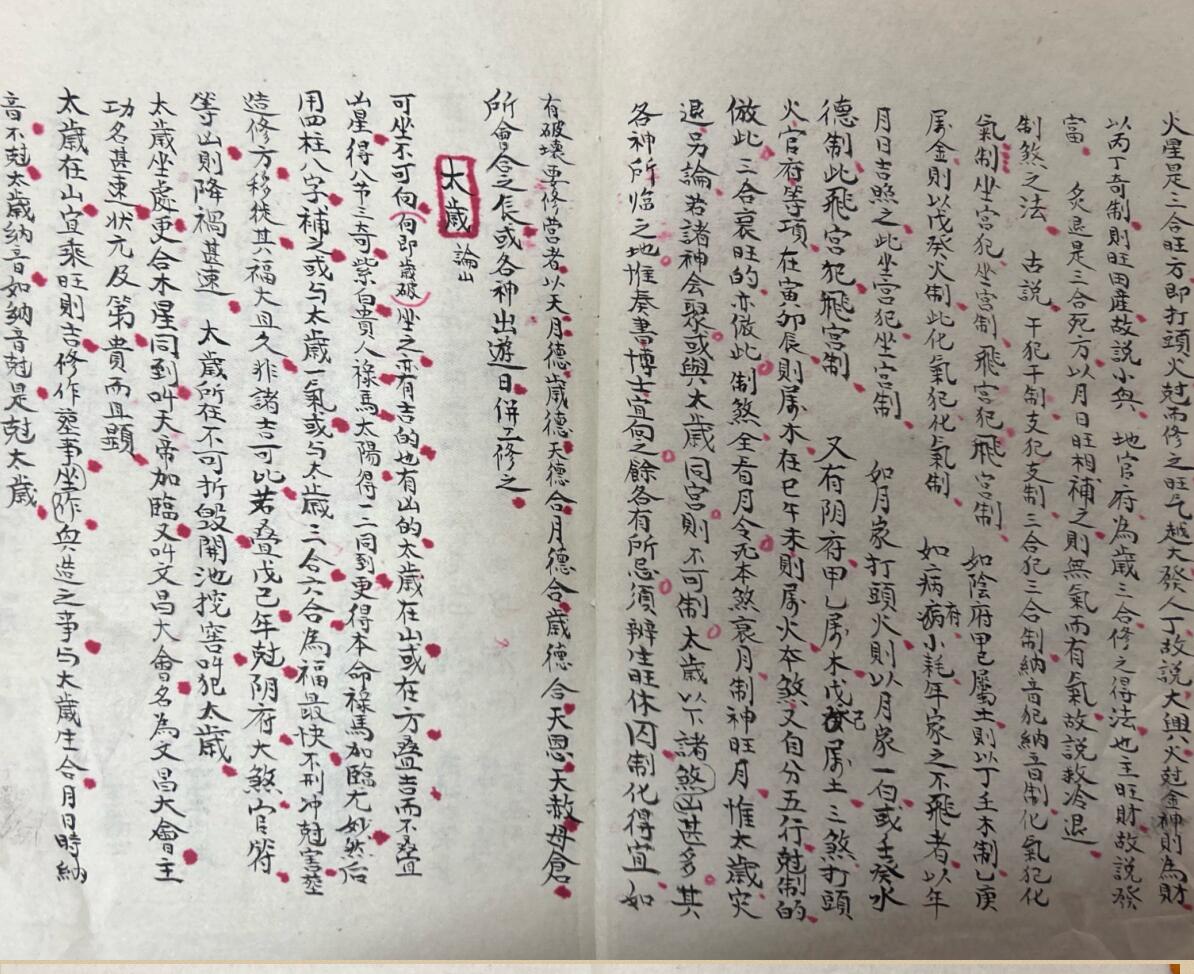 火星是三合旺方即打頭火尅而修之旺气越大發人丁故説大興火尅金神則為財
以丙丁奇制則旺田產故説小興 地官府為歲三合修之得法也主旺財故説發
富 炙退是三合死方以月日旺相補之則無氣而有氣故説救冷退
制煞之法 古説 干犯干制支犯支制三合犯三合制納音犯納音制化氣犯化
氣制坐宫犯坐宫制飛宫犯飛宫制 如陰府甲己屬土則以丁壬木制乙庚
属金則以戊癸火制此化氣犯化氣制 如病府病小耗年家之不飛者以年
月日吉照之此坐宫犯坐宫制 如月家打頭火則以月家一白或壬癸水
德制此飛宫犯飛宫制 又有阴府甲乙属木戊己属土三煞打頭
火官府等項在寅卯辰則属木在巳午未則属火本煞又自分五行尅制的
倣此三合衰旺的亦倣此制煞全看月令死本煞衰月制神旺月惟太歲灾
退另論若諸神会聚或與太歲同宫則不可制太歲以下諸煞凶甚多其
各神所临之地惟奏書博士宜向之餘各有所忌須辨生旺休囚制化得宜如
有破壞要修营者以天月德歲德天德合月德合歲德合天恩天赦母倉
所會合之辰或各神出遊日併工修之
太歲 論凶
可坐不可向(向即歲破)坐之亦有吉的也有凶的太歲在山或在方叠吉而不叠
凶星得八节三奇紫白貴人禄馬太陽得二同到更得本命禄馬加臨尤妙然后
用四柱八字補之或与太歲一氣或与太歲三合六合為福最快不刑冲尅害塟
造修方移徙其福大且久非諸吉可比若叠戊己年尅阴府大煞官符
等凶則降禍甚速 太歲所在不可折毁開池挖窖叫犯太歲
太歲坐處更合木星同到叫天帝加臨又叫文昌大會名為文昌大會主
功名甚速状元及第貴而且顯
太歲在山宜乘旺則吉修作塟事坐阼與造之事与太歲生合月日時納
音不尅太歲納音如納音尅是尅太歲